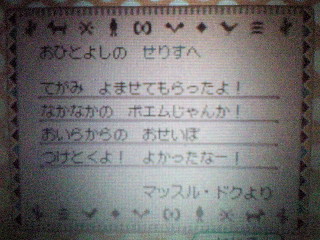 おひとよしの　せりすへ
てがみ　よませてもらったよ！
なかなかの　ポエムじゃんか！
おいらからの　おせいぼ
つけとくよ！　よかったなー！
マッスル・ドクより